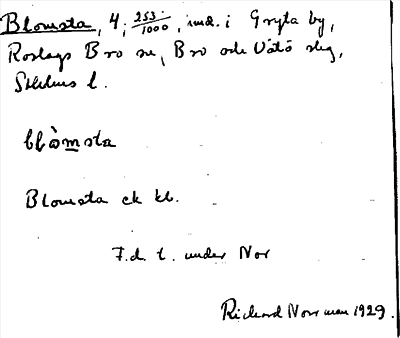 Blomsta, 4, 253/1000, ind. i Gryta by,
Roslags Bro sn, Bro och Vätö slg,
Sthlms l.
blòmsta
Blomsta ek kb.
F.d. t. under Nor
Richard Norrman 1929.